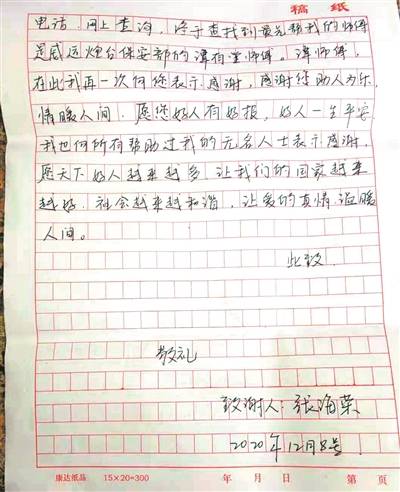 稿 纸
电话、网上查询，终于查找到首先帮我的师傅
是威运烟台保安部的谭有堂师傅。谭师傅，
在此我再一次向您表示感谢，感谢您助人为乐，
情暖人间，愿您好人有好报，好人一生平安
我也向所有帮助过我的无名人士表示感谢，
愿天下好人越来越多，让我们的国家越来
越好，社会越来越和谐，让爱的真情温暖
人间。
此致
敬礼
致谢人：张海荣
2020年12月8号
康达纸品 15×20=300 年 月 日 第 页